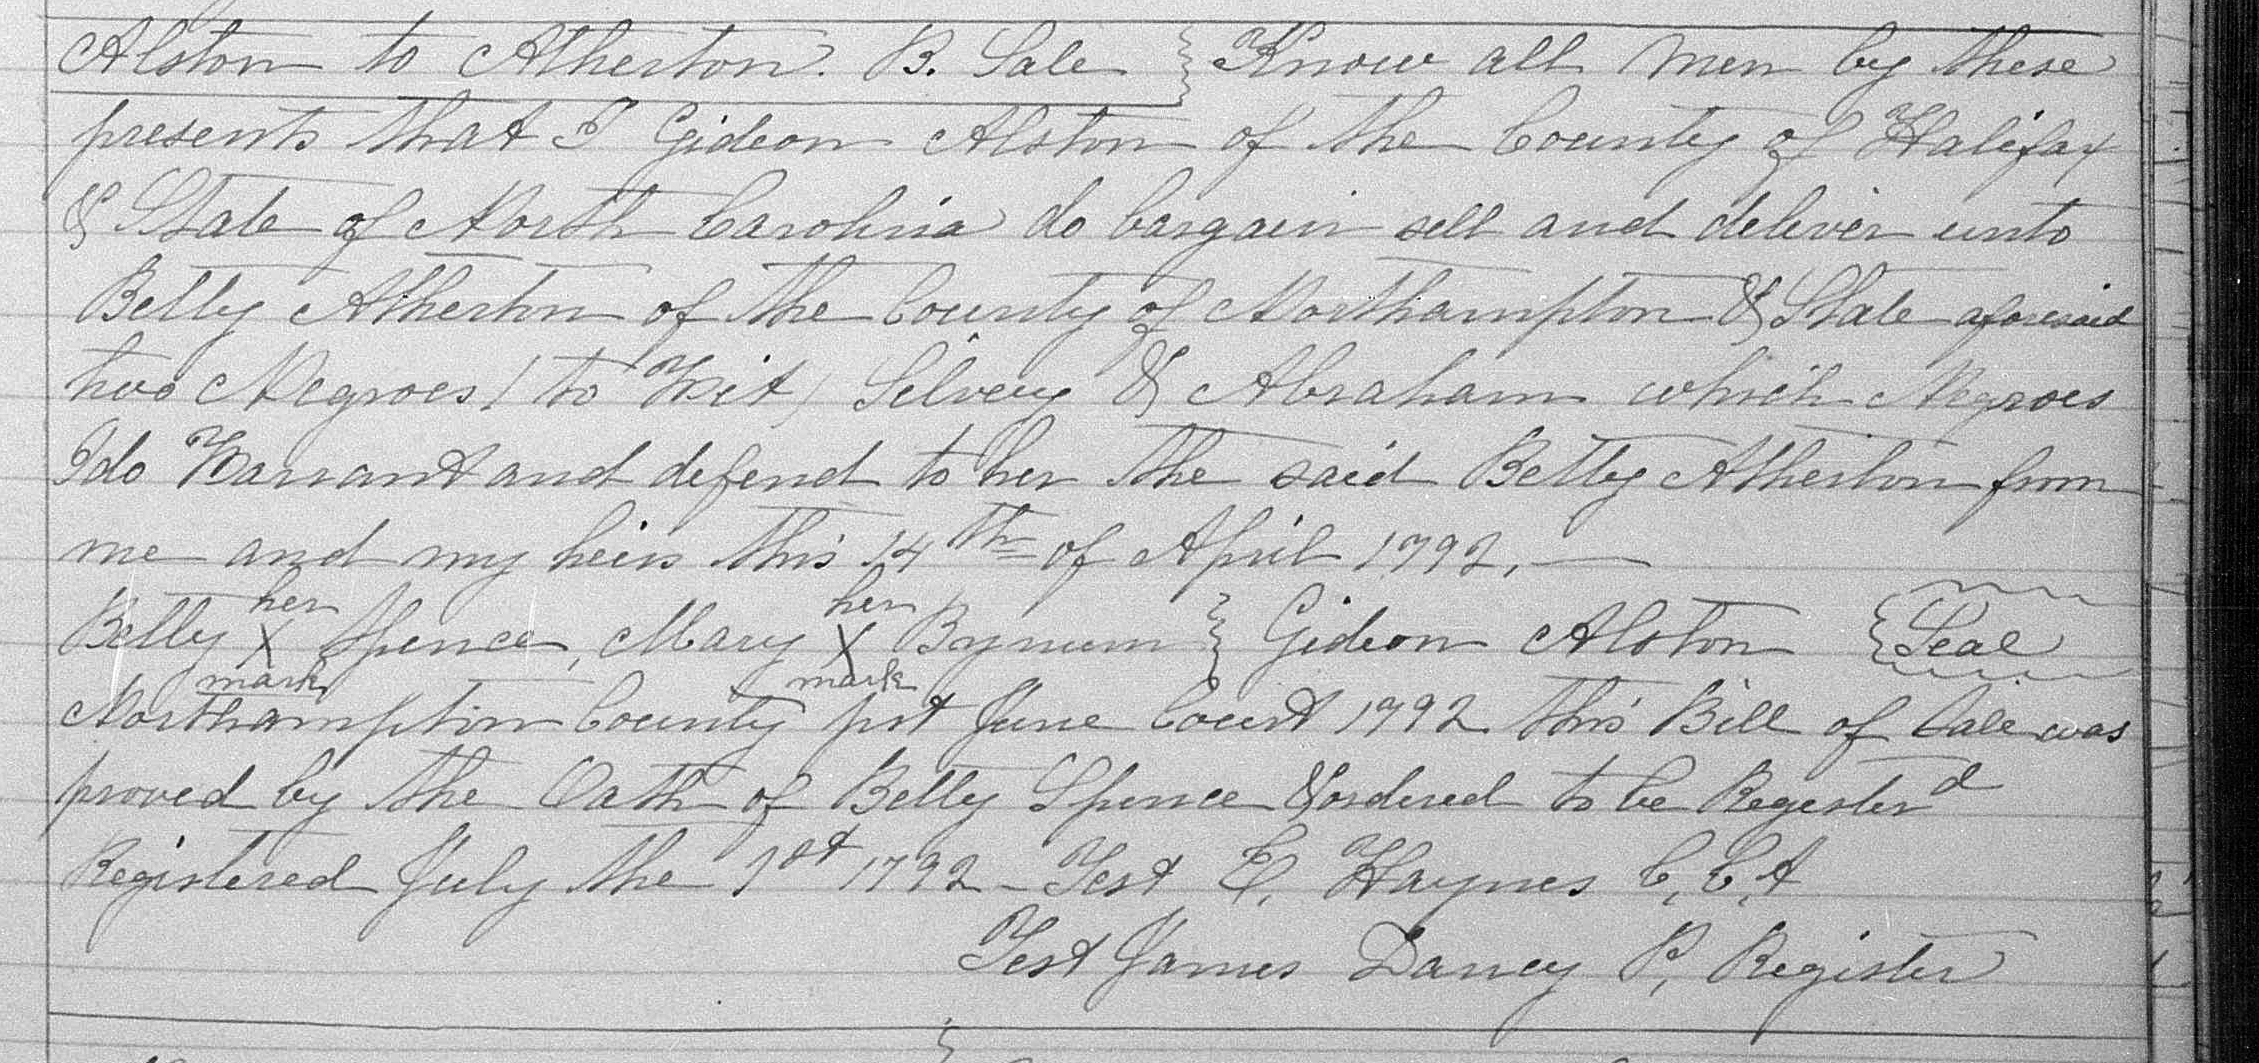 Alston to Atherton. B. Sale } Know all men by these
presents that I Gideon Alston of the County of Halifax
& State of North Carolina do bargain sell and deliver unto
Betty Atherton of the County of Northampton & State aforesaid
two Negroes (to Wit) Silvey & Abraham which Negroes
I do Warrant and defend to her the said Betty Atherton from
me and my heirs this 14th of April 1792.
her her
Betty X Spence, Mary X Bynum } Gideon Alston {Seal
mark mark
Northampton County pst June Court 1792 this Bill of Sale was
proved by the Oath of Betty Spence & ordered to be Registerd
Registered July the 1st 1792 - Test E. Haynes C, C, A
Test James Dancy P, Register